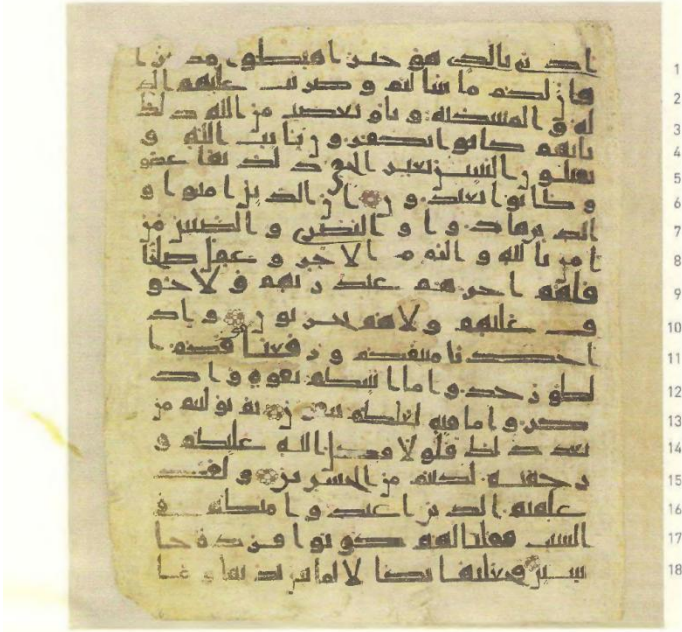 ادنى بالذي هو خير اهبطوا مصرا 1
فان لكم ما سالتم و ضربت عليهم الذ 2
لة و المسكنة و باو بغضب من الله ذلك 3
بانهم كانوا يكفرون بايت الله و 4
يقتلون النبين بغير الحق ذلك بما عصو 5
و كانوا يعتدون ان الذين امنوا و 6
الذين هادوا و النصرى و الصبين من 7
امن بالله و اليوم الاخر و عمل صلحا 8
فلهم اجرهم عند ربهم و لا خو 9
ف عليهم و لا هم يحزنون و اذ 10
اخذنا ميثقكم و رفعنا فوقكم ا 11
لطور خذوا ما اتينكم بقوة و اذ 12
كروا ما فيه لعلكم تتقون ثم توليتم من 13
بعد ذلك فلولا فضل الله عليكم و 14
رحمته لكنتم من الخسرين و لقد 15
علمتم الذين اعتدوا منكم في 16
السبت فقلنا لهم كونوا قردة خا 17
سين فجعلنها نكلا لما بين يديها و ما 18